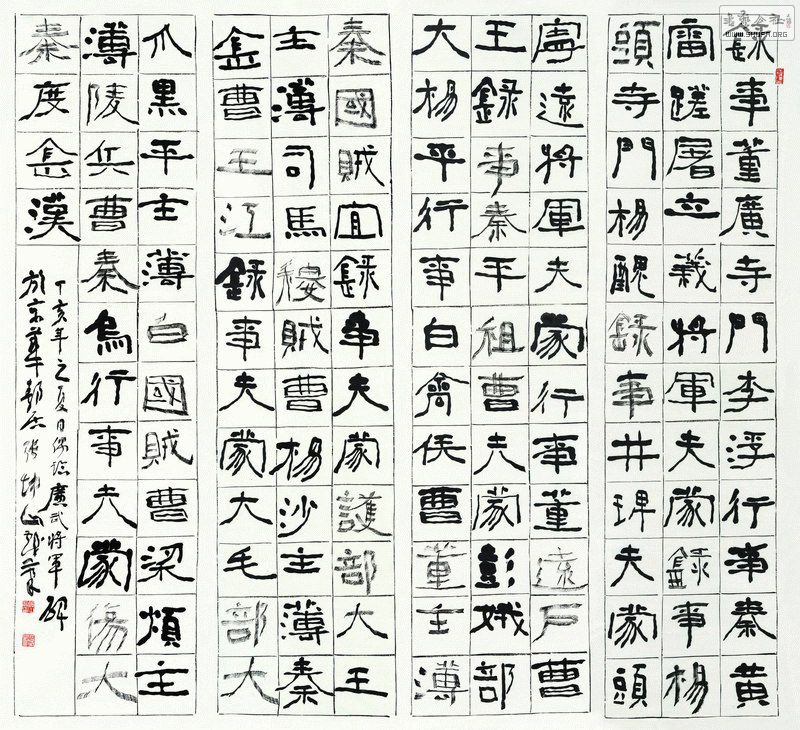 錄事董廣寺門李浮行事秦黃
雷蹉屠立義將軍夫蒙錄事楊
頭寺門楊醜錄事井琕夫蒙頭
寧遠將軍夫蒙行事董遠戶曹
王錄事秦平祖曹夫蒙彭娥部
大楊平行事白禽侯曹董主薄
秦國賊宜錄事夫蒙護部大王
主薄司馬賊曹楊沙主薄秦
金曹王江錄事夫蒙大毛部大
爪黑平主薄白國賊曹梁煩主
薄陵兵曹秦烏行事夫蒙傷大
秦度金漢
丁亥年之夏日偶臨廣武將軍碑
於京華張坤山